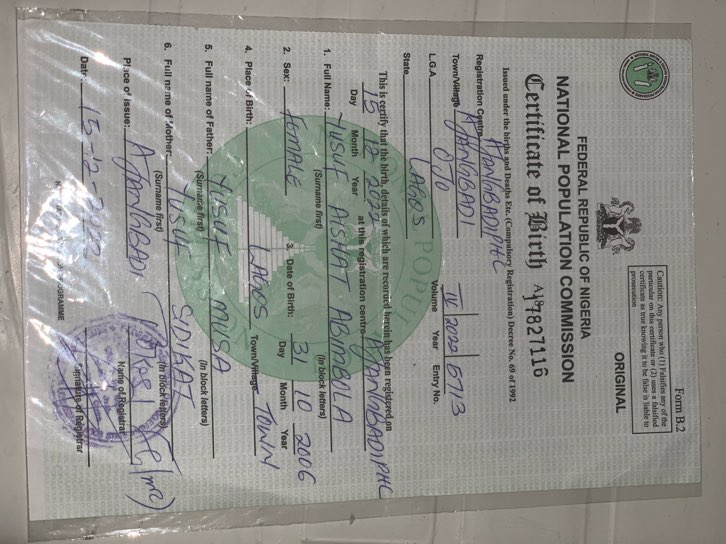 Form B.2
Caution: Any person who (1) Falsifies any of the particular on this certificate or (2) uses a falsified certificate as true knowing it to be false is liable to prosecution
ORIGINAL
FEDERAL REPUBLIC OF NIGERIA
NATIONAL POPULATION COMMISSION
Certificate of Birth
Issued under the births and Deaths Etc. (Compulsory Registration) Decree No. 69 of 1992
Registration Centre AJANGBADI PHC
Town/Village AJANGBADI IV 2022 6713
L.G.A OJO Volume Year Entry No.
State LAGOS
This is certify that the birth, details of which are recorded herein has been registered on
15 12 2022 at this registration centre AJANGBADI PHC
Day Month Year
1. Full Name: YUSUF AISHAT ABIMBOLA
(Surname first) (In block letters)
2. Sex: FEMALE 3. Date of Birth: 31 10 2006
Day Month Year
4. Place of Birth: LAGOS Town/Village TOWN
5. Full name of Father: YUSUF MUSA
(Surname first) (In block letters)
6. Full name of Mother: YUSUF SIDIKAT
(Surname first) (In block letters)
Place of issue: AJANGBADI
Name of Registrar
Date: 15-12-
Signature of Registrar